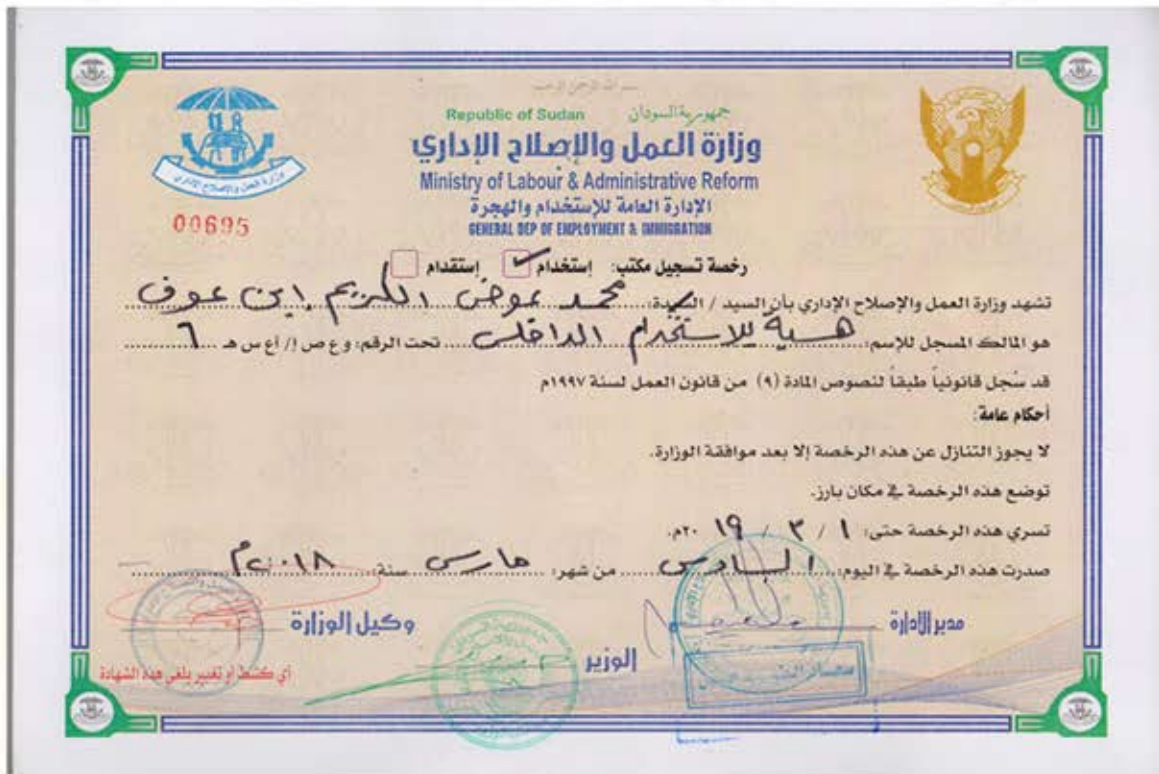 بسم الله الرحمن الرحيم
Republic of Sudan جمهورية السودان
وزارة العمل والإصلاح الإداري
Ministry of Labour & Administrative Reform
الإدارة العامة للإستخدام والهجرة
GENERAL DEP OF EMPLOYMENT & IMMIGRATION
وزارة العمل والإصلاح الإداري
00695
رخصة تسجيل مكتب: إستخدام إستقدام
تشهد وزارة العمل والإصلاح الإداري بأن السيد / السيدة: محمد عوض الكريم ابن عوف
هو المالك المسجل للإسم: للاستخدام الداخلي تحت الرقم: و ع ص إ/ أ ع س هـ ٦
قد سُجل قانونياً طبقاً لنصوص المادة (٩) من قانون العمل لسنة ١٩٩٧م
أحكام عامة:
لا يجوز التنازل عن هذه الرخصة إلا بعد موافقة الوزارة.
توضع هذه الرخصة في مكان بارز.
تسري هذه الرخصة حتى: ١ / ٣ / ١٩ ٢٠م.
صدرت هذه الرخصة في اليوم: السادس من شهر: مارس سنة: ٢٠١٨م
مدير الإدارة
الوزير
وكيل الوزارة
أي كشط أو تغيير يلغي هذه الشهادة